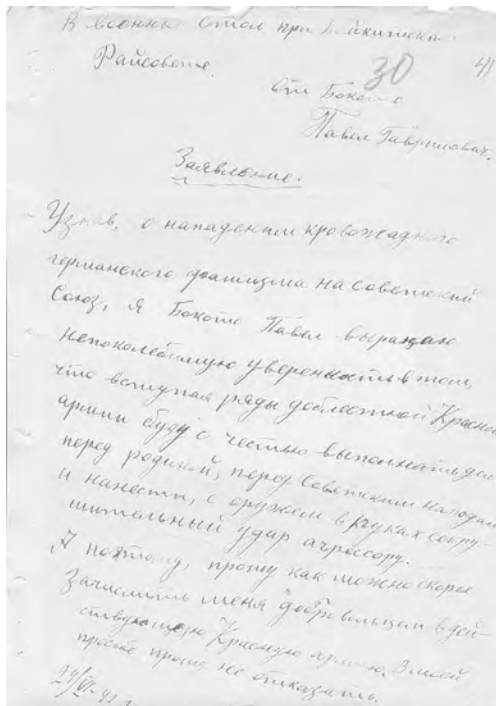 В военный стол при Байкитском
Райсовете.
30
41
от Бокото
Павел Гаврилович.
Заявление.
Узнав, о нападении кровожадного
германского фашизма на советский
Союз, я Бокото Павел выражаю
непоколебимую уверенность в том,
что вступая ряды доблестной Красной
армии буду с честью выполнять долг
перед родиной, перед Советским народом
и нанести, с оружием в руках сокру-
шительный удар агрессору.
А поэтому, прошу как можно скорее
Зачислить меня добровольцем в дей-
ствующую Красную армию. В моей
просьбе прошу не отказать.
24/VI-41